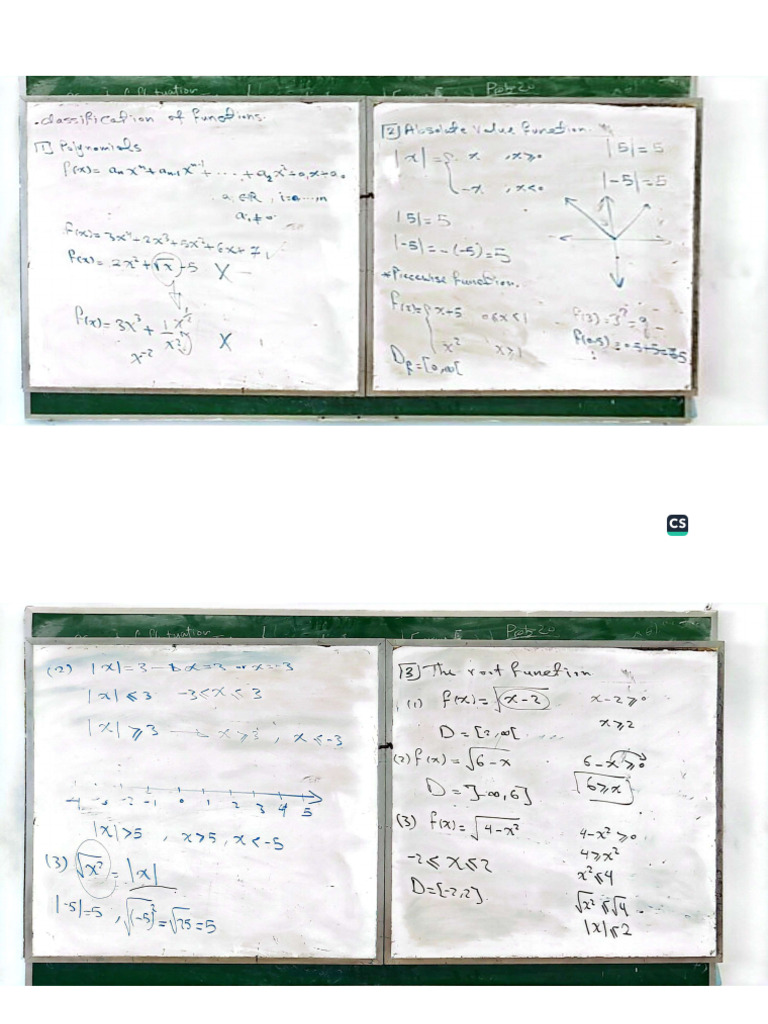 Prob 20
.classification of functions.
[1] Polynomials
f(x) = aₙxⁿ + aₙ₋₁xⁿ⁻¹ + ... + a₂x² + a₁x + a₀
f(x) = 3x⁴ + 2x³ + 5x² + 6x + 7
f(x) = 2x² + √x + 5 X
x^{1/2}
f(x) = 3x³ + 1/x² X
x⁻²
[2] Absolute value function.
|x| = { x , x≥0
-x , x<0
|5| = 5
|-5| = 5
|5| = 5
|-5| = -(-5) = 5
*Piecewise function.
f(x) = { x+5 0≤x<1
x² x≥1
D_f = [0,∞[
f(3) = 3² = 9
CS
Prob 20
(2) |x| = 3 → x = 3 or x = -3
|x| ≤ 3 -3 ≤ x ≤ 3
|x| ≥ 3 → x ≥ 3 , x ≤ -3
-2 -1 0 1 2 3 4 5
|x| > 5 , x > 5 , x < -5
(3) √x² = |x|
|-5| = 5 , √(-5)² = √25 = 5
[3] The root function
(1) f(x) = √x-2 x-2 ≥ 0
x ≥ 2
D = [2,∞[
(2) f(x) = √6-x 6-x ≥ 0
6 ≥ x
D = ]-∞,6]
(3) f(x) = √4-x² 4-x² ≥ 0
4 ≥ x²
-2 ≤ x ≤ 2 x² ≤ 4
D = [-2,2] √x² ≤ √4
|x| ≤ 2